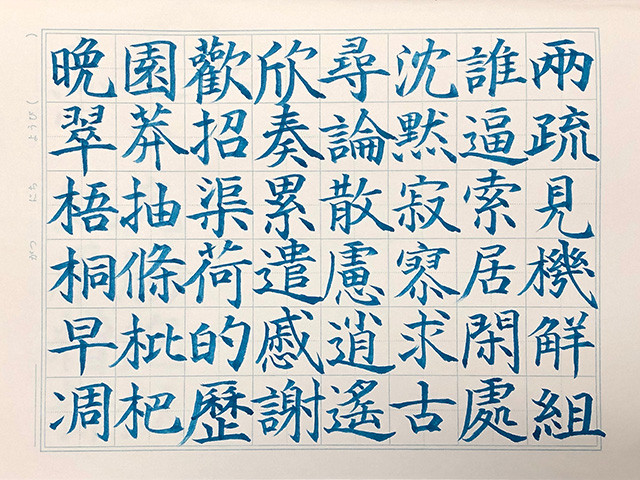 兩疏見機觧組
誰逼索居閑處
沈黙寂寥求古
尋論散慮逍遙
欣奏累遣慼謝
歡招渠荷的歷
園莽抽條枇杷
晩翠梧桐早凋
がつ にち ようび( )